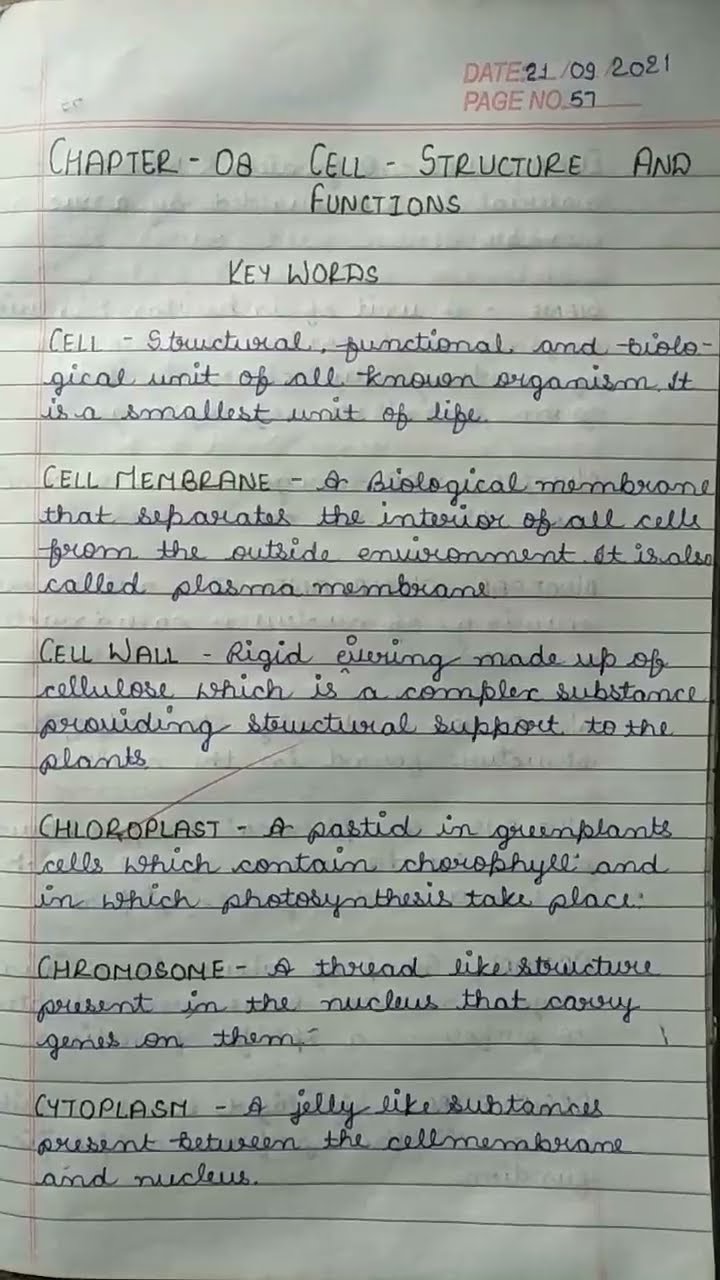 DATE 21/09/2021
PAGE NO. 57
CHAPTER - 08 CELL - STRUCTURE AND
FUNCTIONS
KEY WORDS
CELL - Structural, functional, and biolo-
gical unit of all known organism. It
is a smallest unit of life.
CELL MEMBRANE - A Biological membrane
that separates the interior of all cells
from the outside environment. It is also
called plasma membrane.
CELL WALL - Rigid made up of
cellulose which is a complex substance
providing structural support to the
plants
CHLOROPLAST - A pastid in greenplants
cells which contain chorophyll and
in which photosynthesis take place.
CHROMOSOME - A thread like structure
present in the nucleus that carry
genes on them.
CYTOPLASM - A jelly like subtances
present between the cellmembrane
and nucleus.